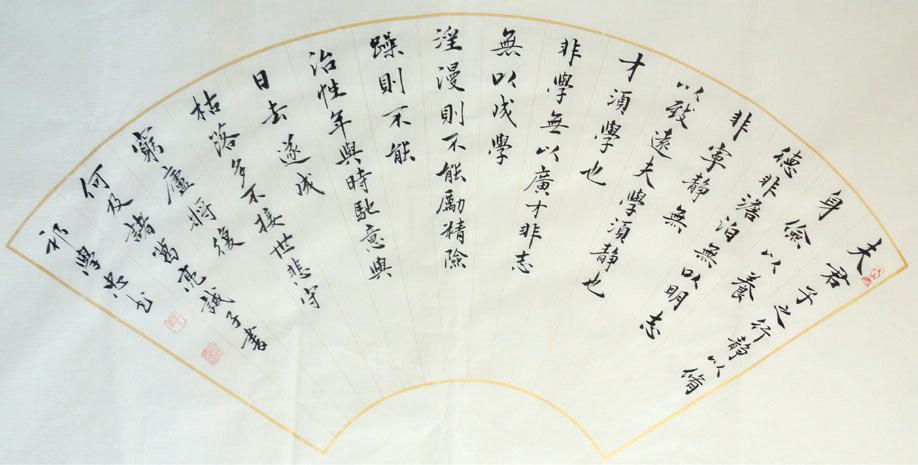 夫君子之行静以脩
身儉以養
德非澹泊無以明志
非寧静無
以致遠夫學須静也
才須學也
非學無以廣才非志
無以成學
淫漫則不能勵精險
躁則不能
治性年與時馳意與
日去遂成
枯落多不接世悲守
窮廬將復
何及諸葛亮誡子書
祁學忠书